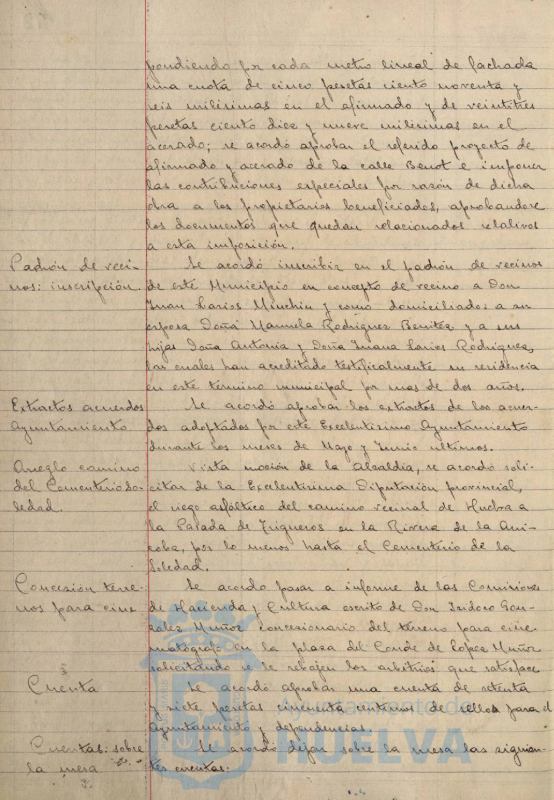 pondiendo por cada metro lineal de fachada
una cuota de cinco pesetas ciento noventa y
seis milésimas en el afirmado y de veintitres
pesetas ciento diez y nueve milésimas en el
acerado; se acordó aprobar el referido proyecto de
afirmado y acerado de la calle Benot e imponer
las contribuciones especiales por razón de dicha
obra a los propietarios beneficiados, aprobandose
los documentos que quedan relacionados relativos
a esta imposición.
Padrón de veci-
nos: inscripción.
Se acordó inscribir en el padrón de vecinos
de este Municipio en concepto de vecino a Don
Juan Larios Minchin y como domiciliados a su
esposa Doña Manuela Rodriguez Benitez y a sus
hijas Doña Antonia y Doña Juana Larios Rodriguez,
las cuales han acreditado testificalmente su residencia
en este término municipal por mas de dos años.
Extractos acuerdos
Ayuntamiento
Se acordó aprobar los extractos de los acuer-
dos adoptados por este Excelentisimo Ayuntamiento
durante los meses de Mayo y Junio ultimos.
Arreglo camino
del Cementerio So-
ledad.
Vista moción de la Alcaldía, se acordó soli-
citar de la Excelentisima Diputación provincial,
el riego asfáltico del camino vecinal de Huelva a
la Calzada de Trigueros en la Rivera de la Ani-
coba, por lo menos hasta el Cementerio de la
Soledad.
Concesión terre-
nos para cine
Se acordo pasar a informe de las Comisiones
de Hacienda y Cultura escrito de Don Isidoro Gon-
zalez Muñoz concesionario del terreno para cine-
matógrafo en la plaza del Conde de López Muñoz
solicitando se le rebajen los arbitrios que satisface
Cuenta
Se acordó aprobar una cuenta de setenta
y siete pesetas cincuenta centimos de sellos para el
Ayuntamiento y dependencias.
Cuentas: sobre
la mesa
Se acordó dejar sobre la mesa las siguien-
tes cuentas:
Ayuntamiento de
HUELVA